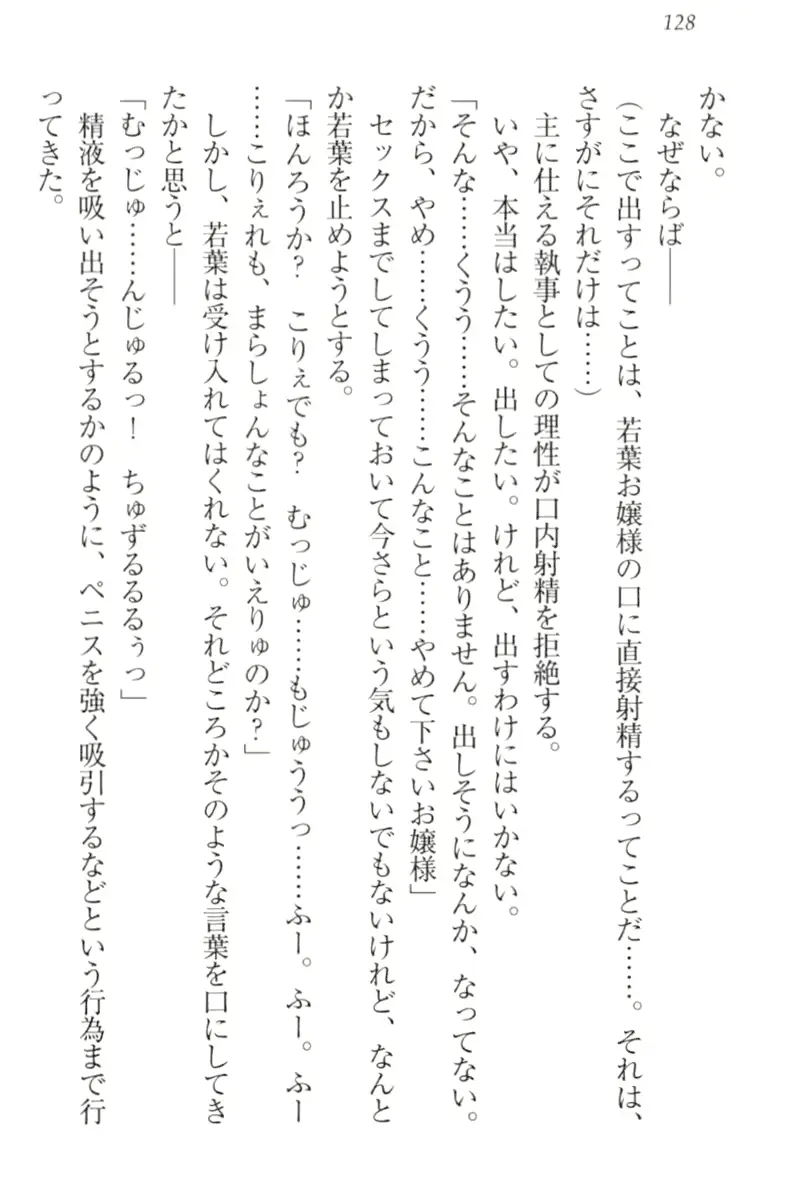 128
かない。
なぜならば――
(ここで出すってことは、若葉お嬢様の口に直接射精するってことだ……。それは、
さすがにそれだけは……)
主に仕える執事としての理性が口内射精を拒絶する。
いや、本当はしたい。出したい。けれど、出すわけにはいかない。
「そんな……くうう……そんなことはありません。出しそうになんか、なってない。
だから、やめ……くうう……こんなこと……やめて下さいお嬢様」
セックスまでしてしまっておいて今さらという気もしないでもないけれど、なんと
か若葉を止めようとする。
「ほんろうか? こりぇでも? むっじゅ……もじゅううっ……ふー。ふー。ふー
……こりぇれも、まらしょんなことがいえりゅのか?」
しかし、若葉は受け入れてはくれない。それどころかそのような言葉を口にしてき
たかと思うと――
「むっじゅ……んじゅるっ! ちゅずるるるぅっ」
精液を吸い出そうとするかのように、ペニスを強く吸引するなどという行為まで行
ってきた。